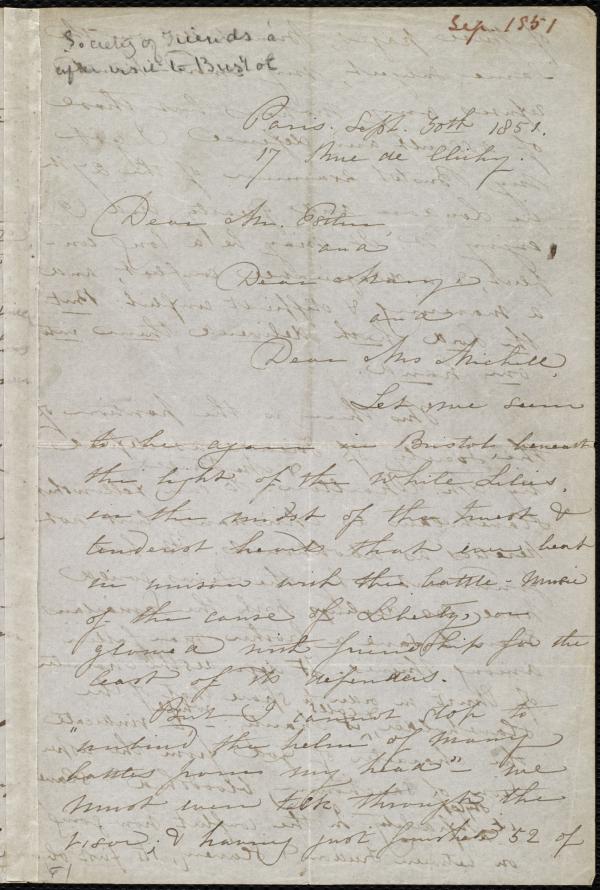 Sep. 1851
Society of Friends a
after visit to Bristol
Paris. Sept. 30th 1851.
17 Rue de Clichy.
Dear Mr. Estlin,
and
Dear Mary
and
Dear Mrs Michell.
Let me seem
to be again in Bristol beneath
the light of the White Lilies,
in the midst of the truest &
tenderest hearts that ever beat
in unison with the battle-music
of the cause of Liberty, or
glowed with friendship for the
least of its defenders.
But I cannot stop to
"unbind the helm of many
battles from my head" - we
must even talk through the
visor, & having just finished 52 of